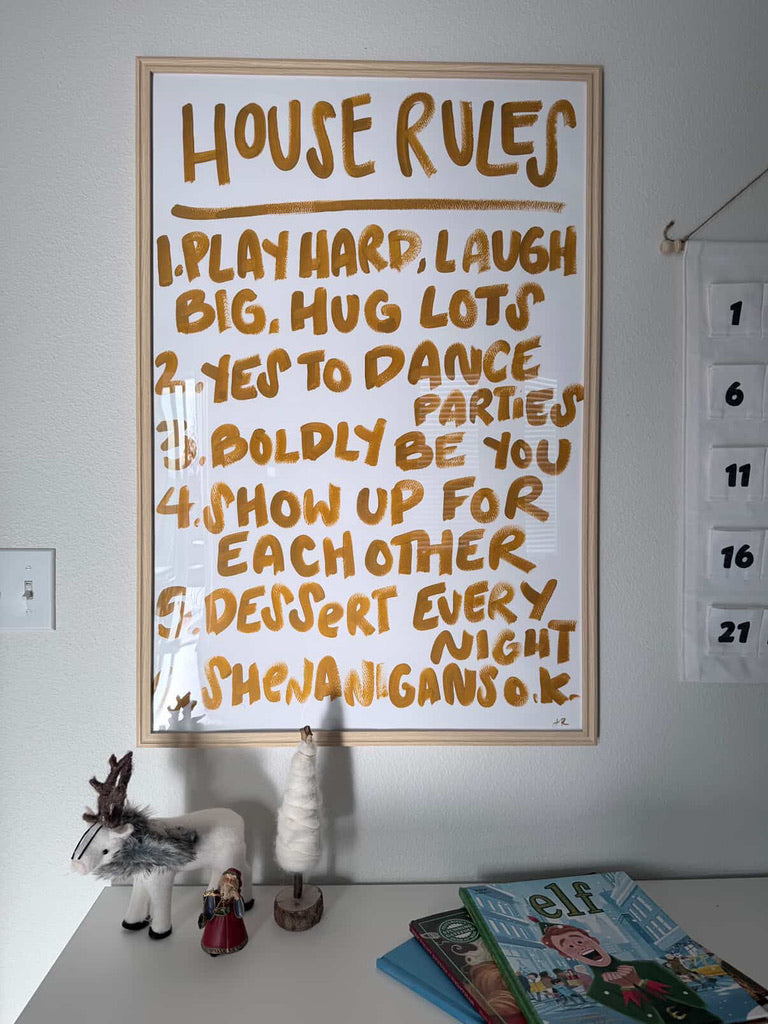 HOUSE RULES
1. PLAY HARD, LAUGH
BIG, HUG LOTS
2. YES TO DANCE
PARTIES
3. BOLDLY BE YOU
4. SHOW UP FOR
EACH OTHER
5. DESSERT EVERY
NIGHT
SHENANIGANS O.K.
1
6
11
16
21
elf